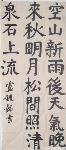 空山新雨後天氣晚
來秋明月松間照清
泉石上流